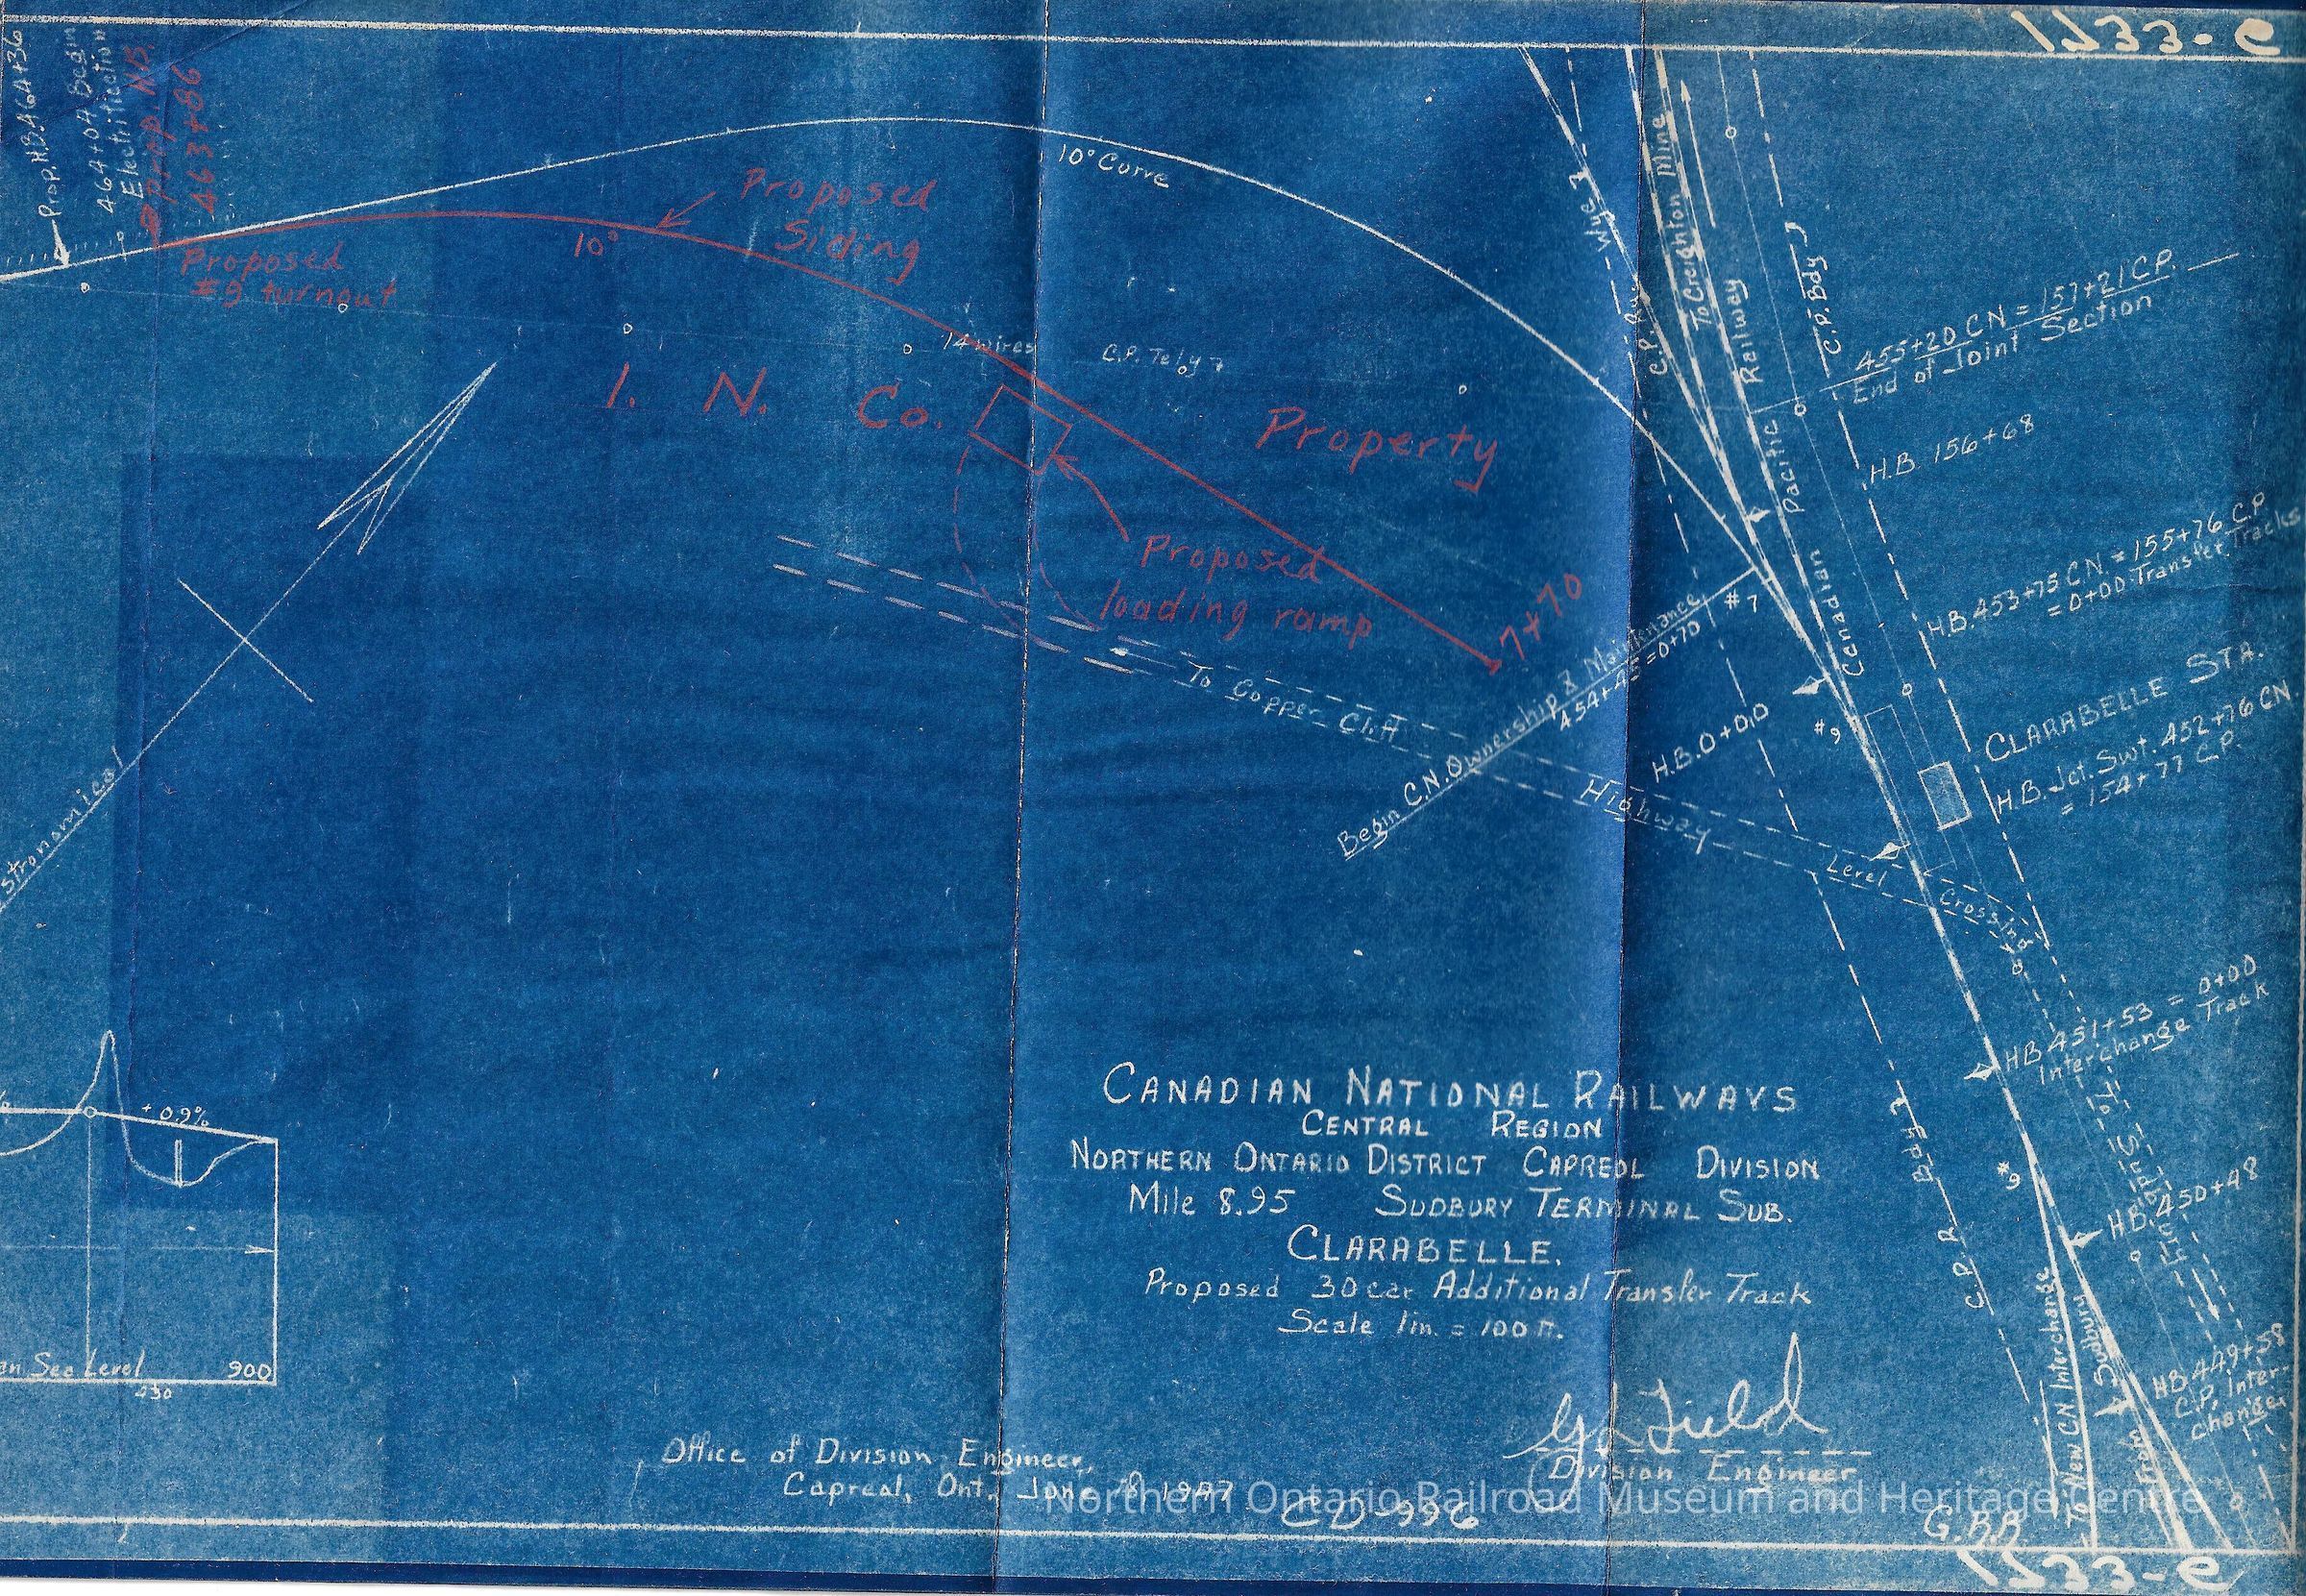 1533-C
Prop. H.B. 464+36
464+04 Begin
Electrification
Prop. H.B.
463+86
Proposed
#9 turnout
10°
Proposed
Siding
10° Curve
14 wires
C.P. Tely
I. N. Co. Property
Proposed
loading ramp
7+70
To Copper Cliff
Highway
Level
Crossing
stronomical
Wye
C.P. Rwy
To Creighton Mine
Canadian Pacific Railway
C.P. Bdy
455+20 CN = 157+21 C.P.
End of Joint Section
H.B. 156+68
H.B. 453+75 CN = 155+76 C.P.
= 0+00 Transfer Tracks
#7
Begin C.N. Ownership & Maintenance
454+45 = 0+70
H.B. 0+00
#9
CLARABELLE STA.
H.B. Jct. Swt. 452+76 CN
= 154+77 C.P.
HB 451+53 = 0+00
Interchange Track
To Sudbury
Highway
#9
HB 450+48
Bdy C.P.R.
HB 449+58
C.P. Inter-
changes
To New CN Interchange
From Sudbury
+0.9%
an Sea Level 900
450
CANADIAN NATIONAL RAILWAYS
CENTRAL REGION
NORTHERN ONTARIO DISTRICT CAPREOL DIVISION
Mile 8.95 SUDBURY TERMINAL SUB.
CLARABELLE.
Proposed 30 car Additional Transfer Track
Scale 1in. = 100 FT.
Field
Division Engineer
Office of Division Engineer,
Capreol, Ont., June 1947
CD-996
Northern Ontario Railroad Museum and Heritage Centre
G.B.B
1533-C